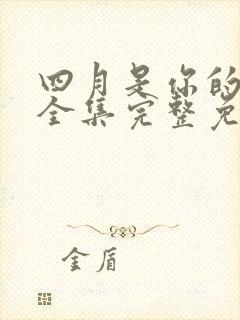 四月是你的
全集完整免
金盾